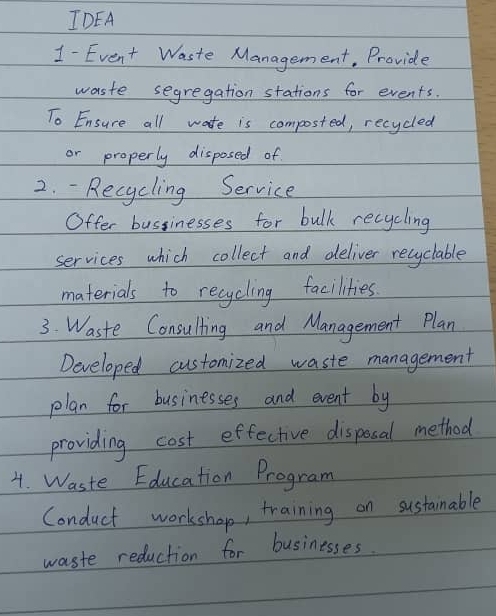 IDEA
1 - Event Waste Management. Provide
waste segregation stations for events.
To Ensure all waste is composted, recycled
or properly disposed of.
2. - Recycling Service
Offer bussinesses for bulk recycling
services which collect and deliver recyclable
materials to recycling facilities.
3. Waste Consulting and Management Plan
Developed customized waste management
plan for businesses and event by
providing cost effective disposal method
4. Waste Education Program
Conduct workshop, training on sustainable
waste reduction for businesses.